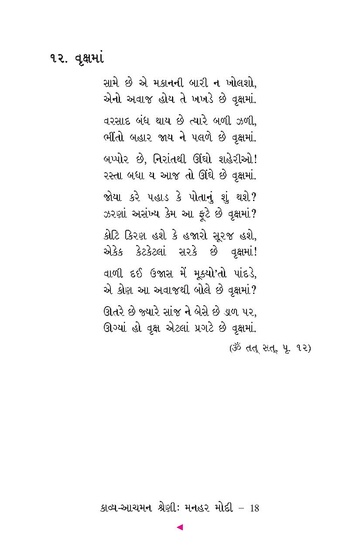 ૧૨. વૃક્ષમાં
સામે છે એ મકાનની બારી ન ખોલશો,
એનો અવાજ હોય તે ખખડે છે વૃક્ષમાં.
વરસાદ બંધ થાય છે ત્યારે બળી ઝળી,
ભીંતો બહાર જાય ને પલળે છે વૃક્ષમાં.
બપ્પોર છે, નિરાંતથી ઊંઘો શહેરીઓ!
રસ્તા બધા ય આજ તો ઊંઘે છે વૃક્ષમાં.
જોયા કરે પહાડ કે પોતાનું શું થશે?
ઝરણાં અસંખ્ય કેમ આ ફૂટે છે વૃક્ષમાં?
કોટિ કિરણ હશે કે હજારો સૂરજ હશે,
એકેક કેટકેટલાં સરકે છે વૃક્ષમાં!
વાળી દઈ ઉજાસ મેં મૂક્યો'તો પાંદડે,
એ કોણ આ અવાજથી બોલે છે વૃક્ષમાં?
ઊતરે છે જ્યારે સાંજ ને બેસે છે ડાળ પર,
ઊગ્યાં હો વૃક્ષ એટલાં પ્રગટે છે વૃક્ષમાં.
(ૐ તત્ સત્, પૃ. ૧૨)
કાવ્ય-આચમન શ્રેણી: મનહર મોદી – 18